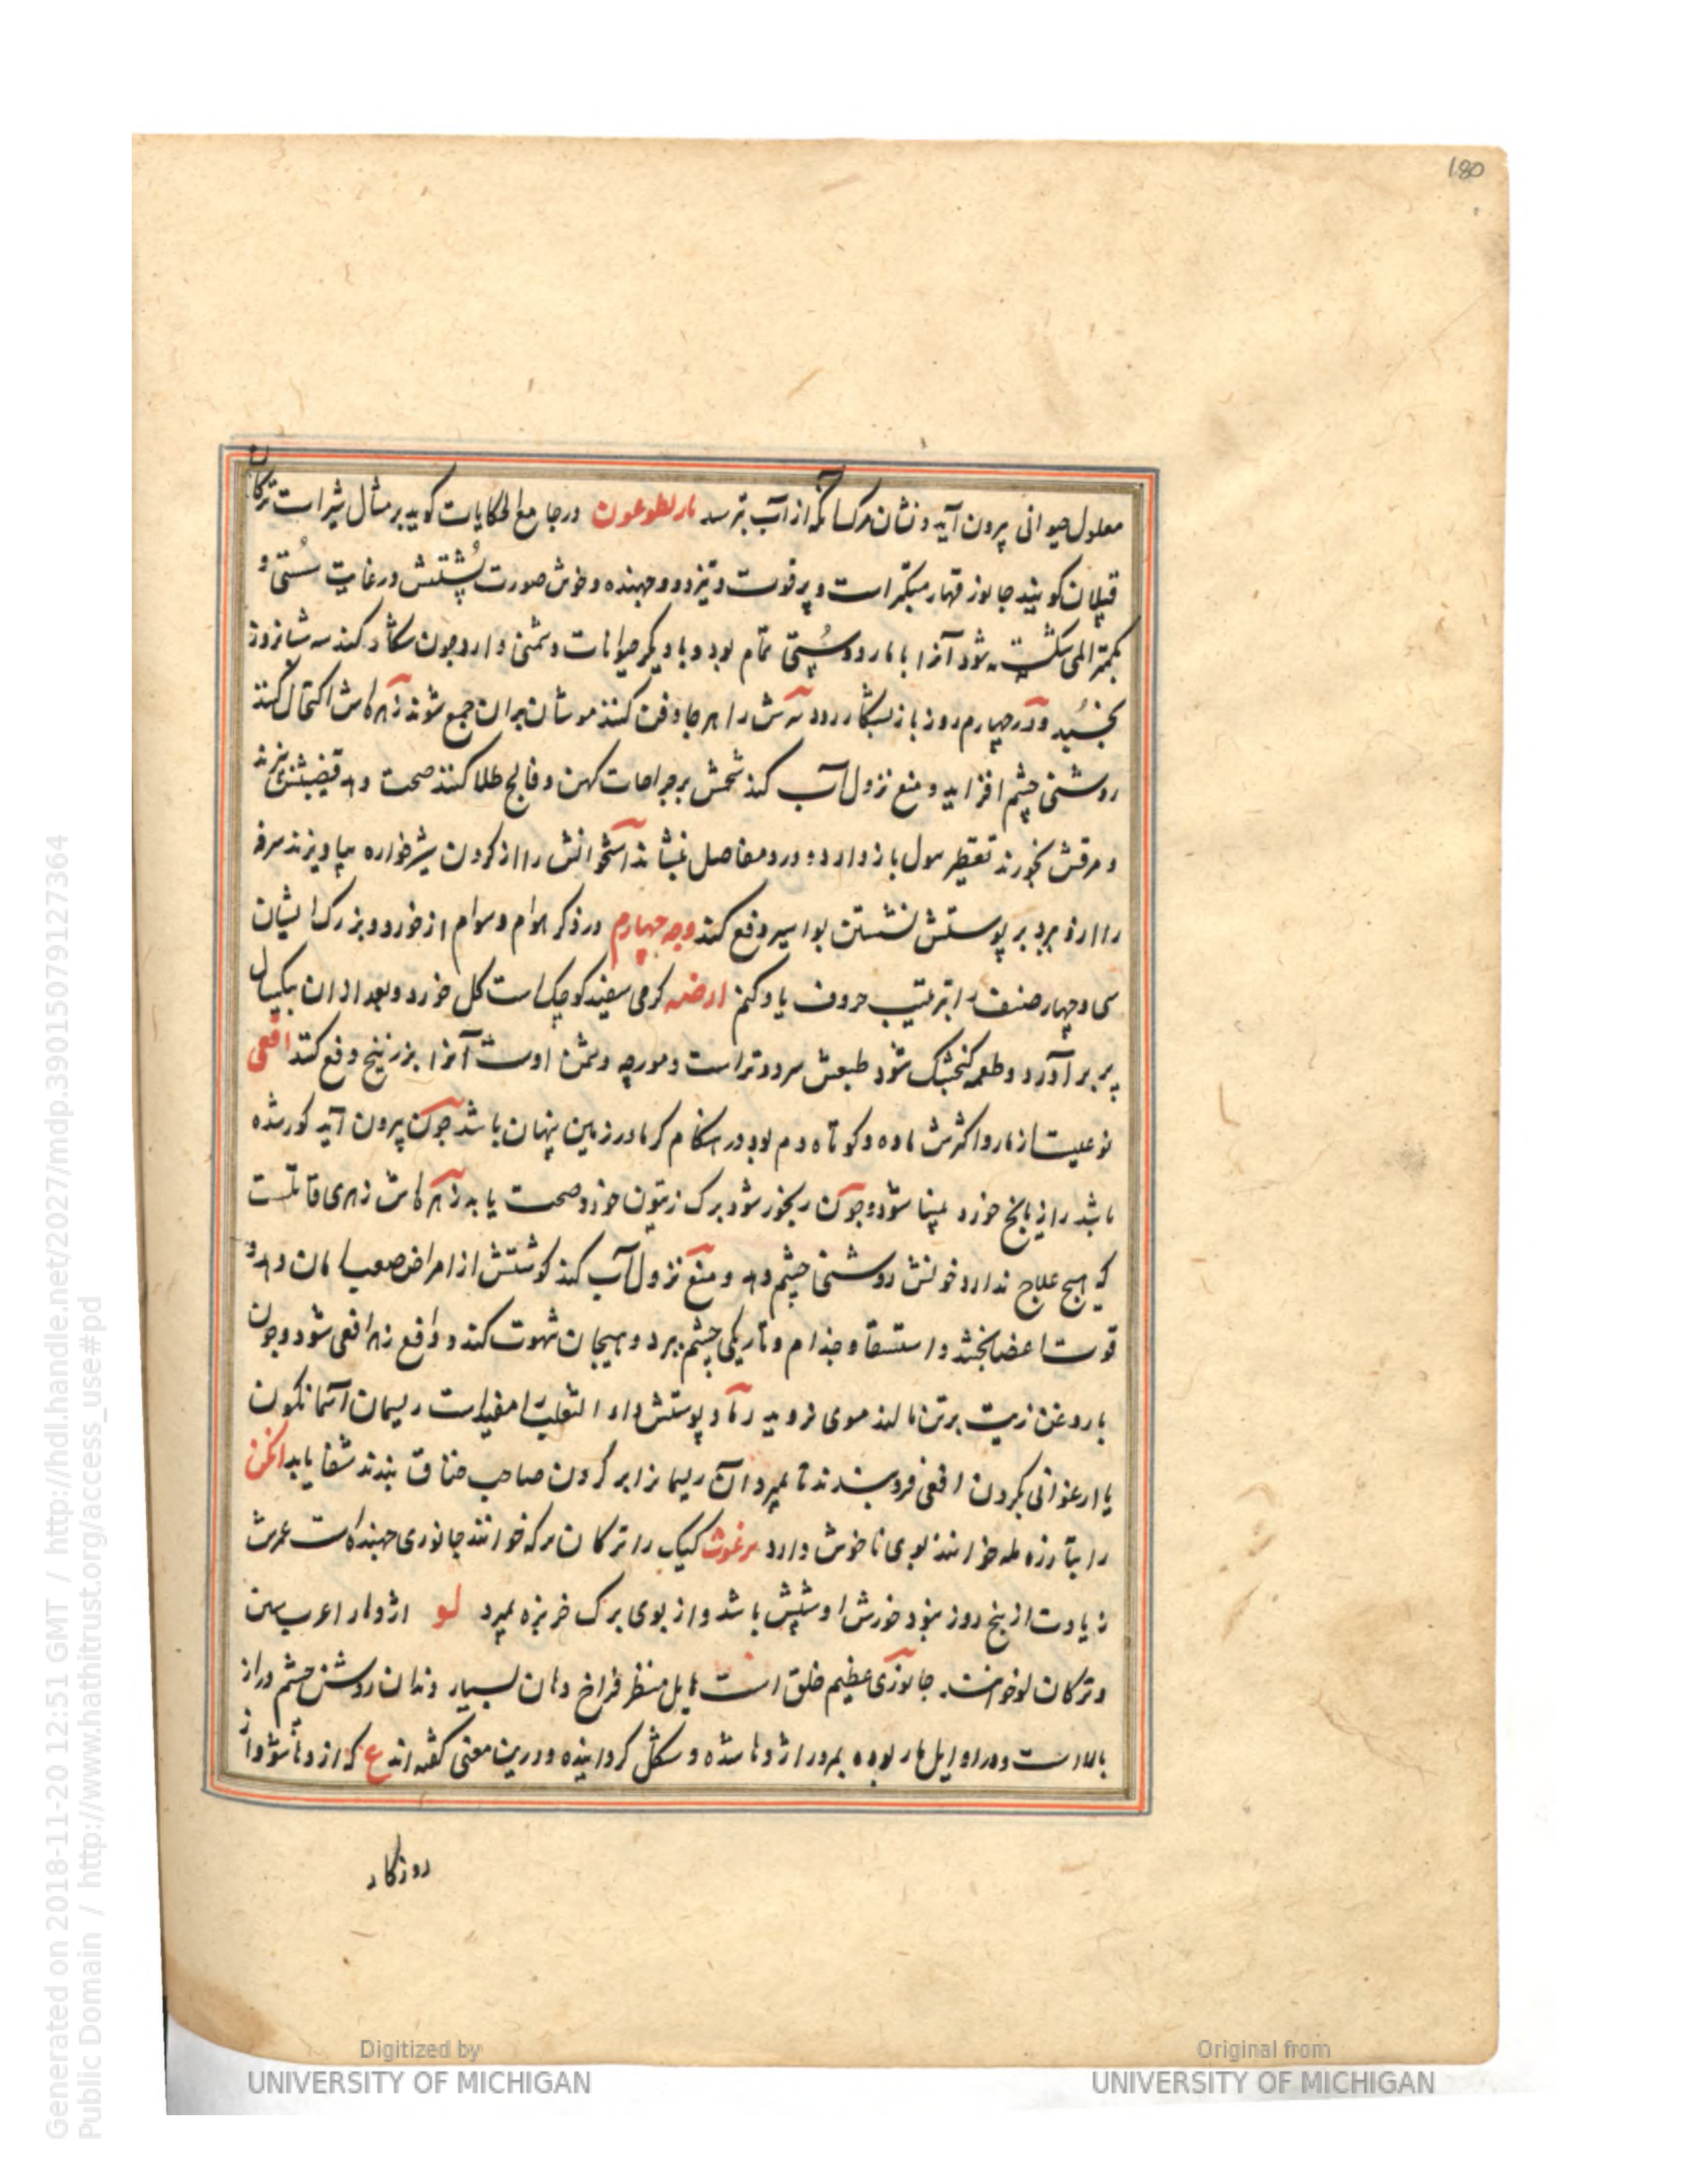 180
معلول حیوانی بیرون آید و نشان مرکسا نکه از آب بترسد در جامع الحکایات کوید بر مثال شیر است ترکان
قپلان کویند جانور قهار متکبر است و پر قوت و تیزدو و جهنده و خوش صورت پشتش در غایت سستی و
بکمتر المی شکسته شود آنرا با مار دوستی تمام بود و با دیکر حیوانات دشمنی دارد چون شکار کند سه شبانروز
بخسپد و در چهارم روز باز بشکار رود سرش را هر جا دفن کنند موشان بران جمع شوند زهره اش اکتحال کنند
روشنی چشم افزاید و منع نزول آب کند شحمش بر جراحات کهن و فالج طلا کنند صحت دهد قضیبش بپزند
و مرقش بخورند تقطیر بول باز دارد و درد مفاصل بنشاند استخوانش را از کردن شیرخواره بیاویزند سرفه
را ازو ببرد بر پوستش نشستن بواسیر دفع کند وجه چهارم در ذکر هوام و سوام از خورد و بزرک ایشان
سی و چهار صنف را بترتیب حروف یاد کنم ارضه کرمی سفید کوچک است کل خورد و بعد از ان بیکسال
پر بر آورد و طعمه کنجشک شود طبعش سرد و تر است و مورچه دشمن اوست آنرا بزرنیخ دفع کنند افعی
نوعیست از مار و اکثرش ماده و کوتاه دم بود در هنکام کرما در زمین پنهان باشد چون بیرون آید کور شده
باشد رازیانج خورد بینا شود و چون رنجور شود برک زیتون خورد صحت یابد زهره اش زهری قاتلست
که هیچ علاج ندارد خونش روشنی چشم دهد و منع نزول آب کند کوشتش از امراض صعب امان دهد و
قوت اعضا بخشد و استسقا و جذام و تاریکی چشم ببرد و هیجان شهوت کند و دافع زهر افعی شود و چون
با روغن زیت بر تن مالند موی نروید رماد پوستش داء الثعلب را مفید است ریسمان آسمانکون
یا ارغوانی بکردن افعی فرو بندند تا بمیرد آن ریسمانرا بر کردن صاحب خناق بندند شفا یابد انجن
را بتازه مله خوانند بوی ناخوش دارد برغوث کیک را ترکان برکه خوانند جانوری جهنده است عمرش
زیادت از پنج روز نبود خورش او شپش باشد و از بوی برک خربزه بمیرد لو اژدها را عرب
و ترکان لو خوانند جانوری عظیم خلق است هایل منظر فراخ دهان بسیار دندان روشن چشم دراز
بالا است و در اوایل مار بوده بمرور اژدها شده و شکل کردانیده و درین معنی کفته اند ع که اژدها شود از
روزکار
Generated on 2018-11-20 12:51 GMT / http://hdl.handle.net/2027/mdp.39015079127364
Public Domain / http://www.hathitrust.org/access_use#pd
Digitized by
UNIVERSITY OF MICHIGAN
Original from
UNIVERSITY OF MICHIGAN